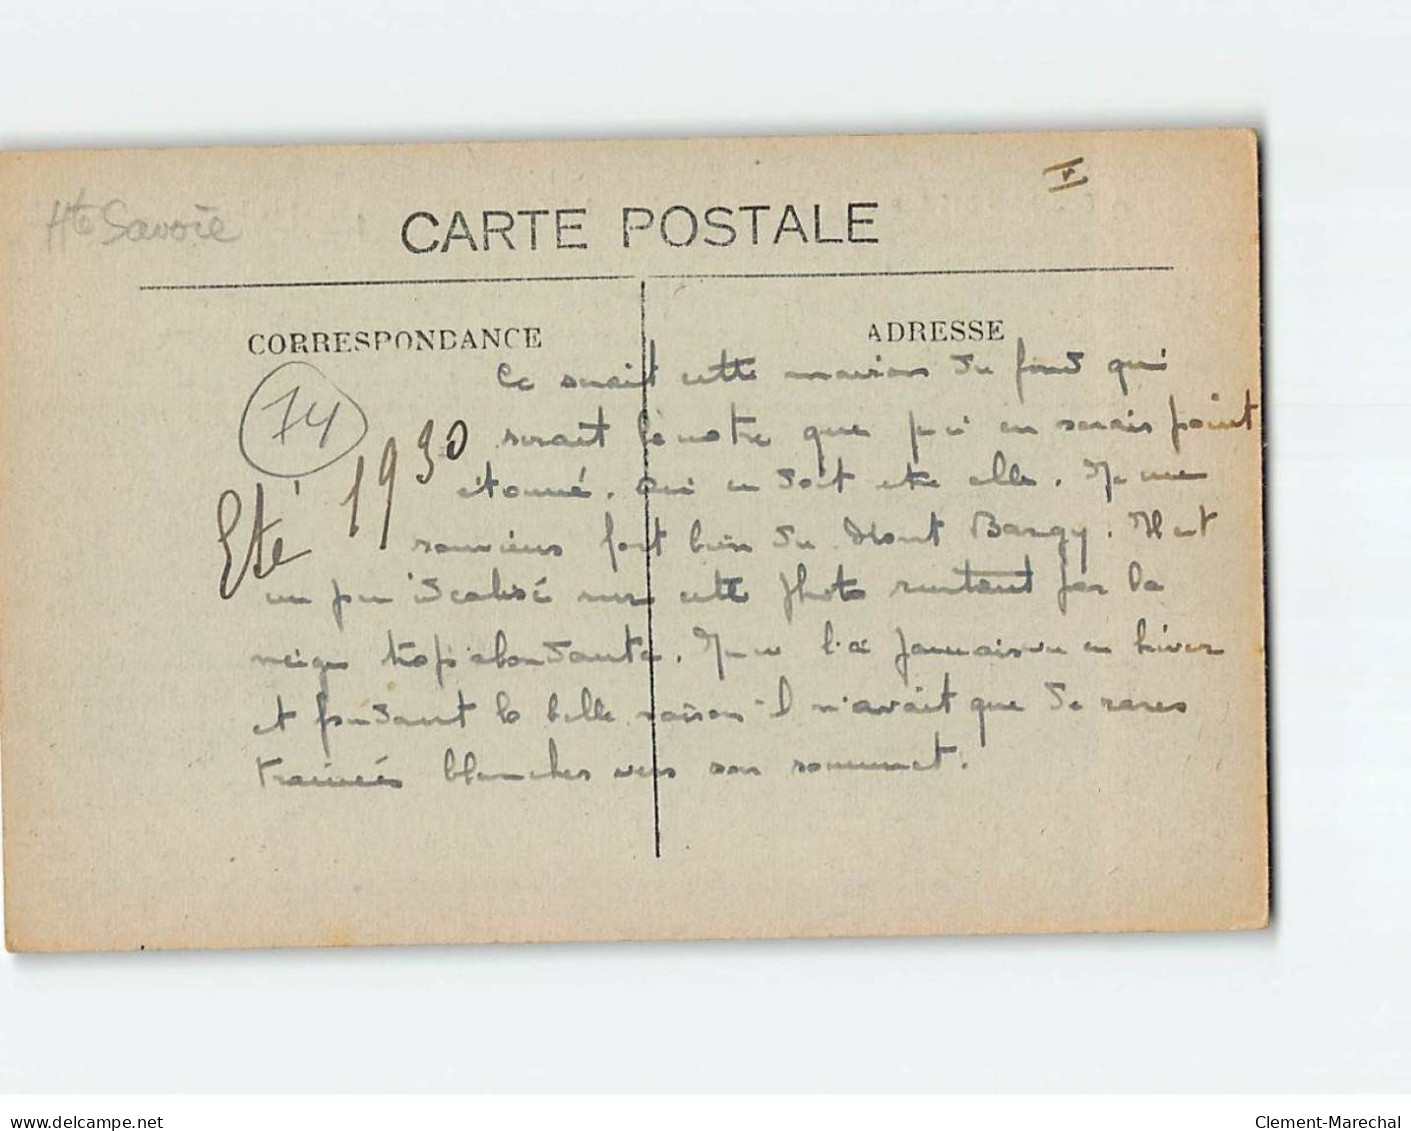 Hte Savoie
CARTE POSTALE
CORRESPONDANCE
ADRESSE
74
Eté 1930
Ce serait cette maison du fond qui
serait la notre que je n'en serais point
étonné. Qui en doit être elle. Je me
souviens fort bien du Mont Bargy. Il est
un peu idéalisé sur cette photo surtout par la
neige trop abondante. Je ne l'ai jamais vu en hiver
et pendant la belle saison il n'avait que de rares
trainées blanches vers son sommet.
www.delcampe.net
Clement-Marechal